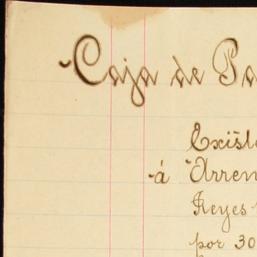 Caja de Pa
Existe
á Arren
Reyes
por 30